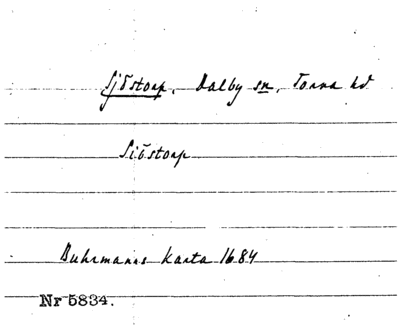 Sjöstorp. Dalby sn, Torna hd
Siöstorp
Buhrmanns karta 1684
Nr 5834.